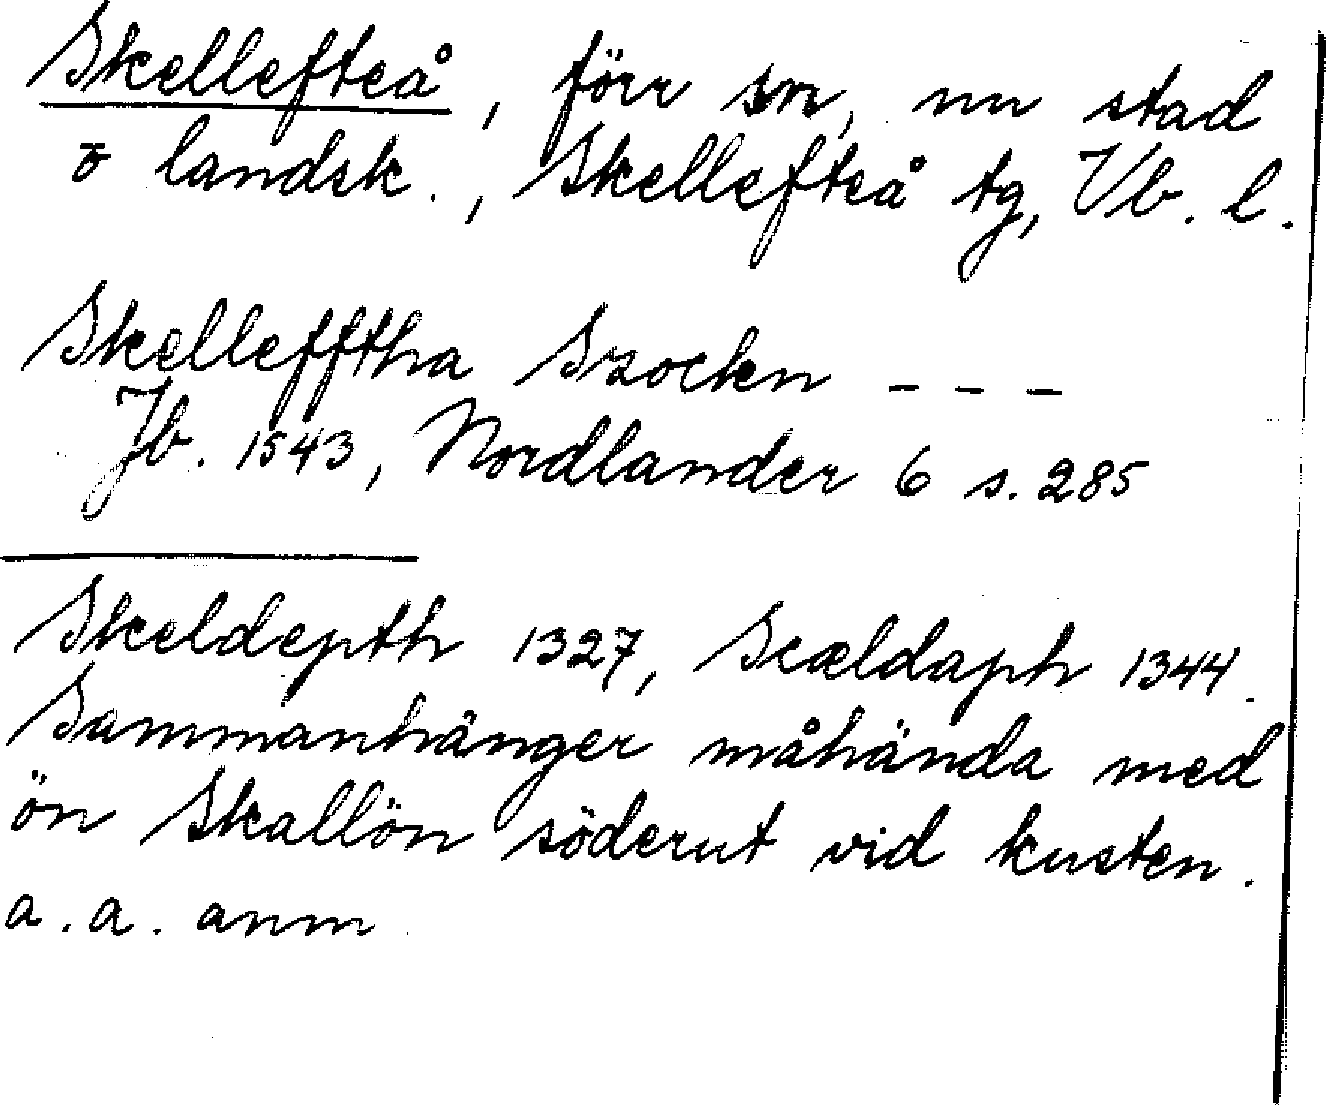 Skellefteå, förr sn, nu stad
o landsk., Skellefteå tg, Vb. l.
Skellefftha Szockn - - -
Jb. 1543, Nordlander 6 s. 285
Skeldepth 1327, Scældaph 1344.
Sammanhänger måhända med
ön Skallön söderut vid kusten.
a. a. anm